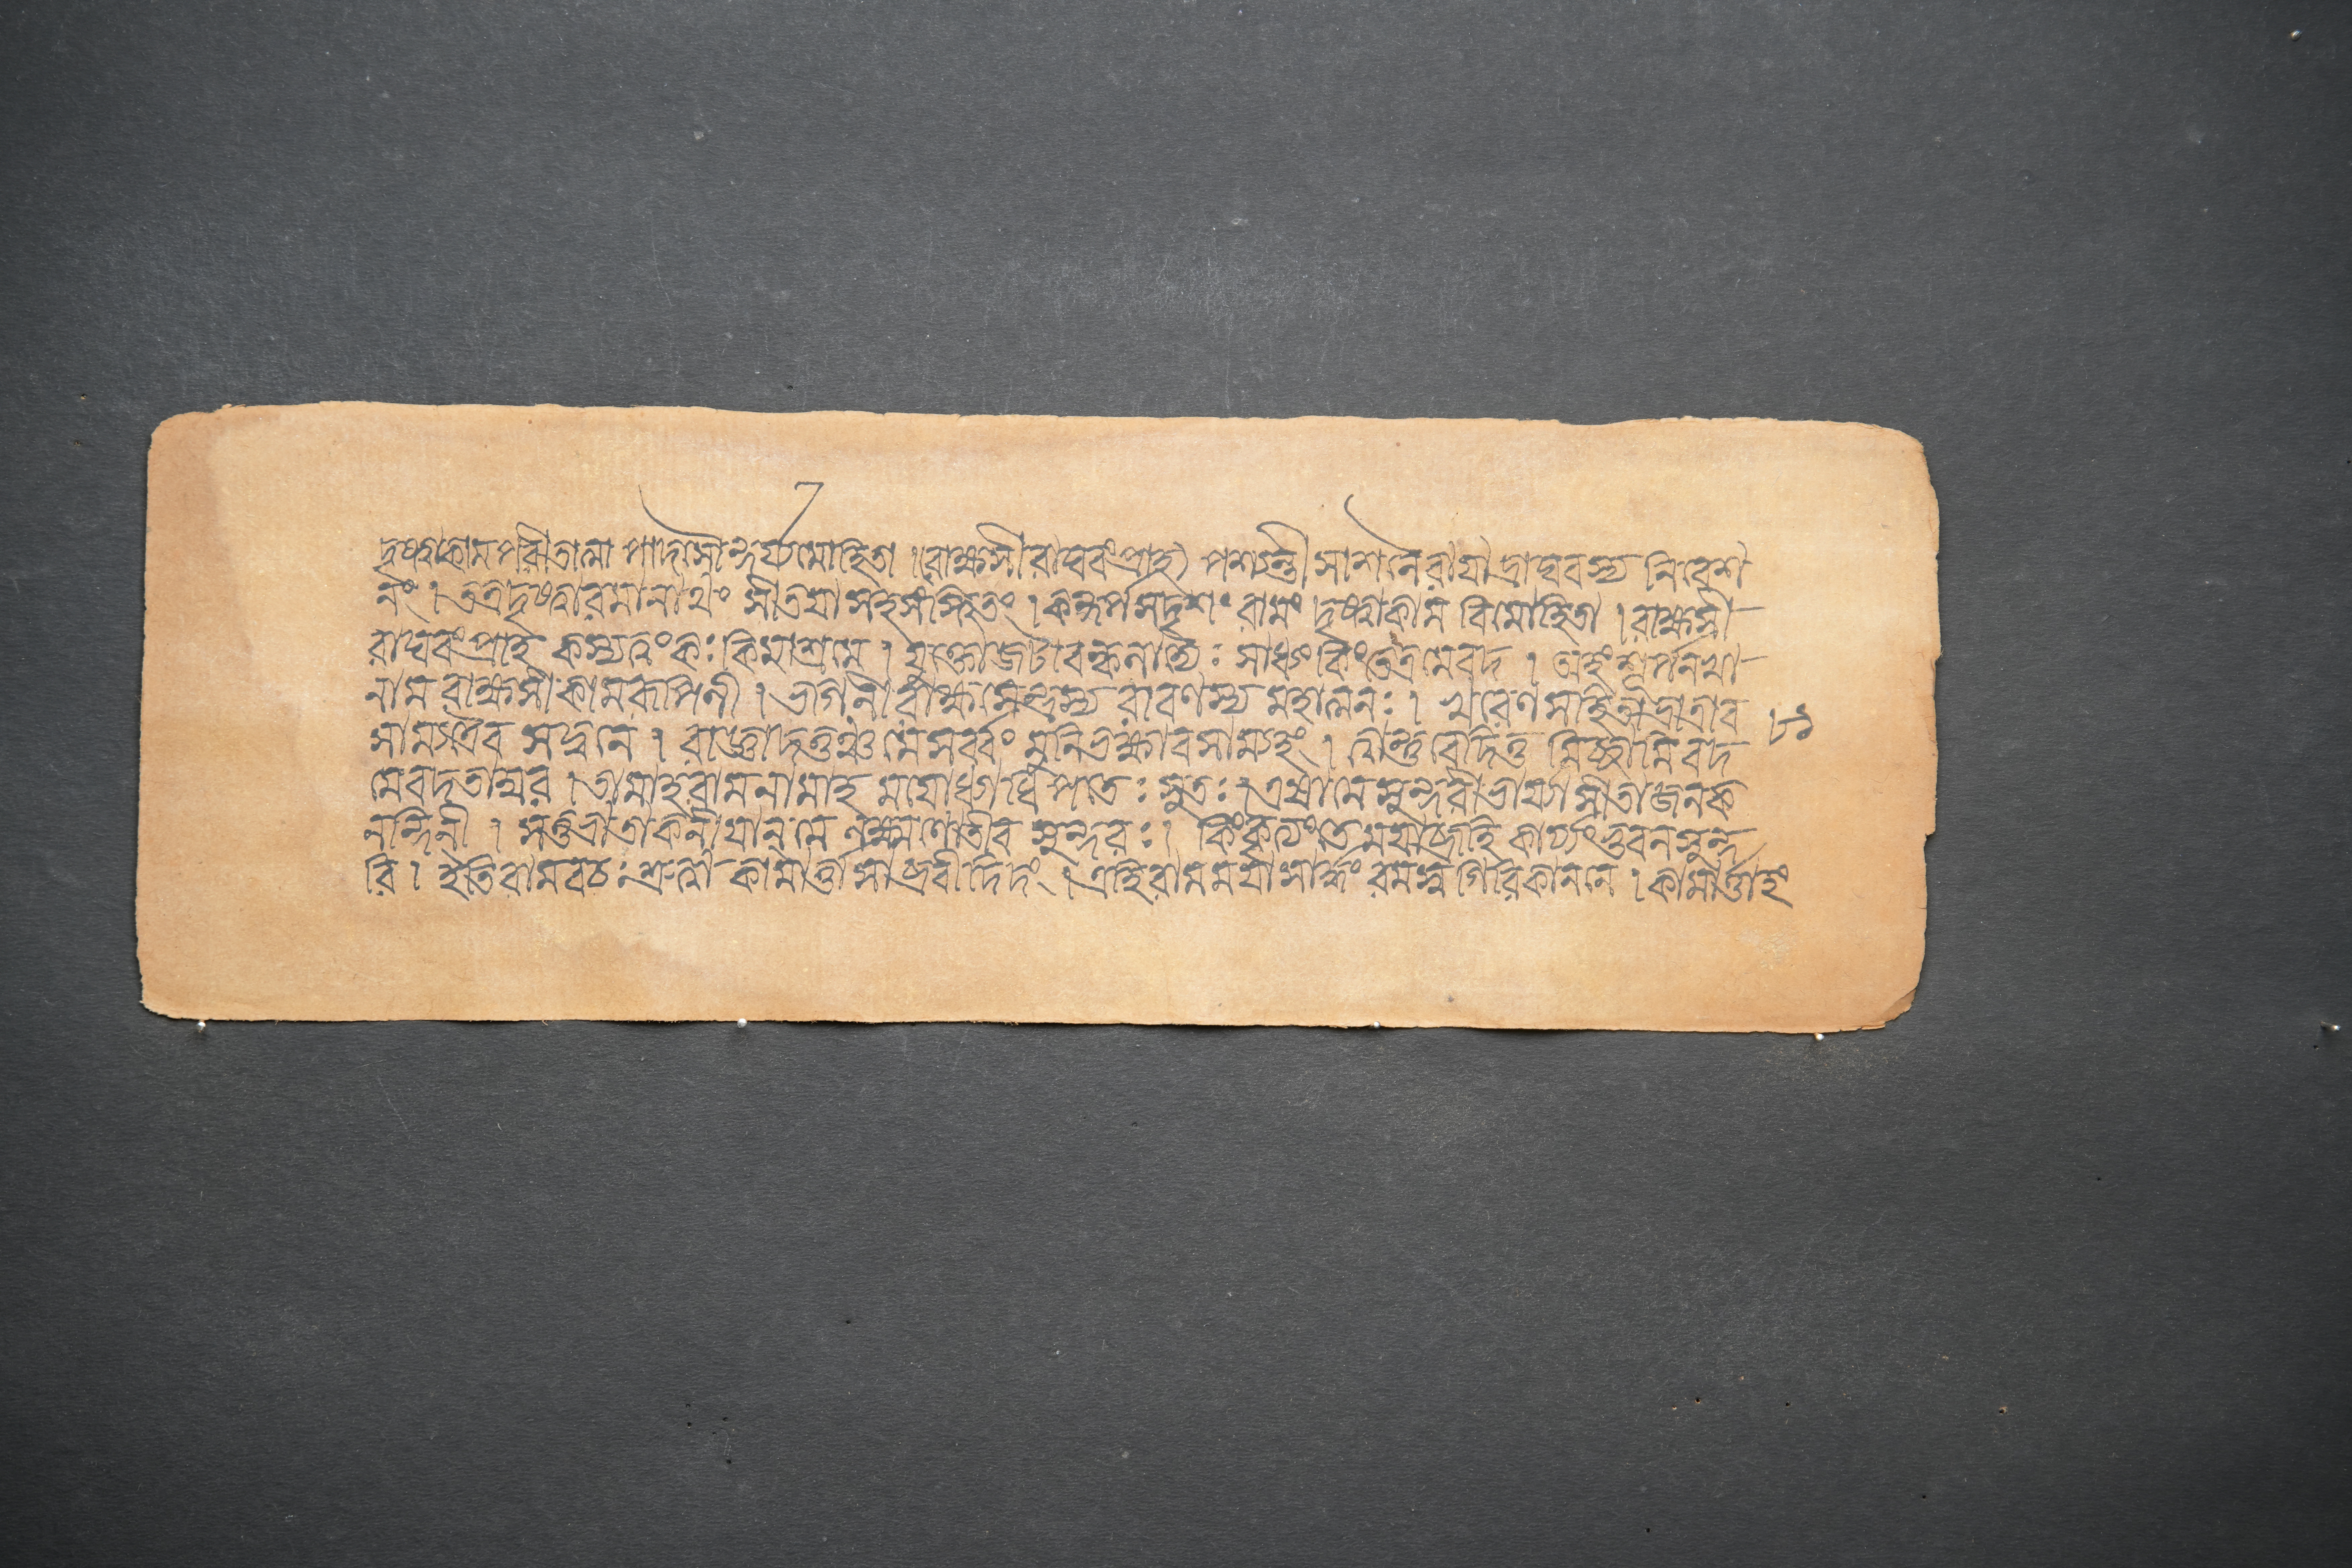 দৃষ্ট্বাকামপরীতাত্মা পাদসৌন্দর্য্যমোহিতা । রাক্ষসীরাঘবংপ্রাহ) পশ্যন্তী সাশনৈরায়াদ্রাঘবস্য নিবেশ
নং । তত্রদৃষ্ট্বারমানাথং সীতয়াসহসংস্থিতং । কন্দর্পসদৃশং রামং দৃষ্ট্বাকাম বিমোহিতা । রাক্ষসী
রাঘবংপ্রাহ কস্যত্বংকঃকিমাশ্রমে । যুক্তোজটাবল্কলাদ্যৈঃ সাধ্যং কিংতেত্রমেবদ । অহংশূর্পনখা
নাম রাক্ষসীকামরূপিনী । ভগিনীরাক্ষসেন্দ্রস্য রাবণস্য মহাত্মনঃ । খরেণসহিতাভ্রাত্রাব
সাম্যত্রৈব সদ্বনে । রাজ্ঞাদত্তঞ্চ মেসর্ব্বং মুনিভক্ষাবসাম্যহং । ত্বান্তুবেদিতু মিচ্ছামিবদ ৮১
মেবদতাম্বর । তামাহরামনামাহ ময়োধ্যাধিপতেঃ সুতঃ । এষামেসুন্দরীভার্য্যাসীতাজনক
নন্দিনী । সতুভ্রাতাকনীয়ান্ মে লক্ষ্মণোতীব সুন্দরঃ । কিংকৃত্যংতেময়াব্রূহি কার্য্যংভুবনসুন্দ
রি । ইতিরামবচঃশ্রুত্বা কামার্ত্তাসাব্রবীদিদং । এহিরামময়াসার্দ্ধং রমস্ব গিরিকাননে । কামার্ত্তাহং